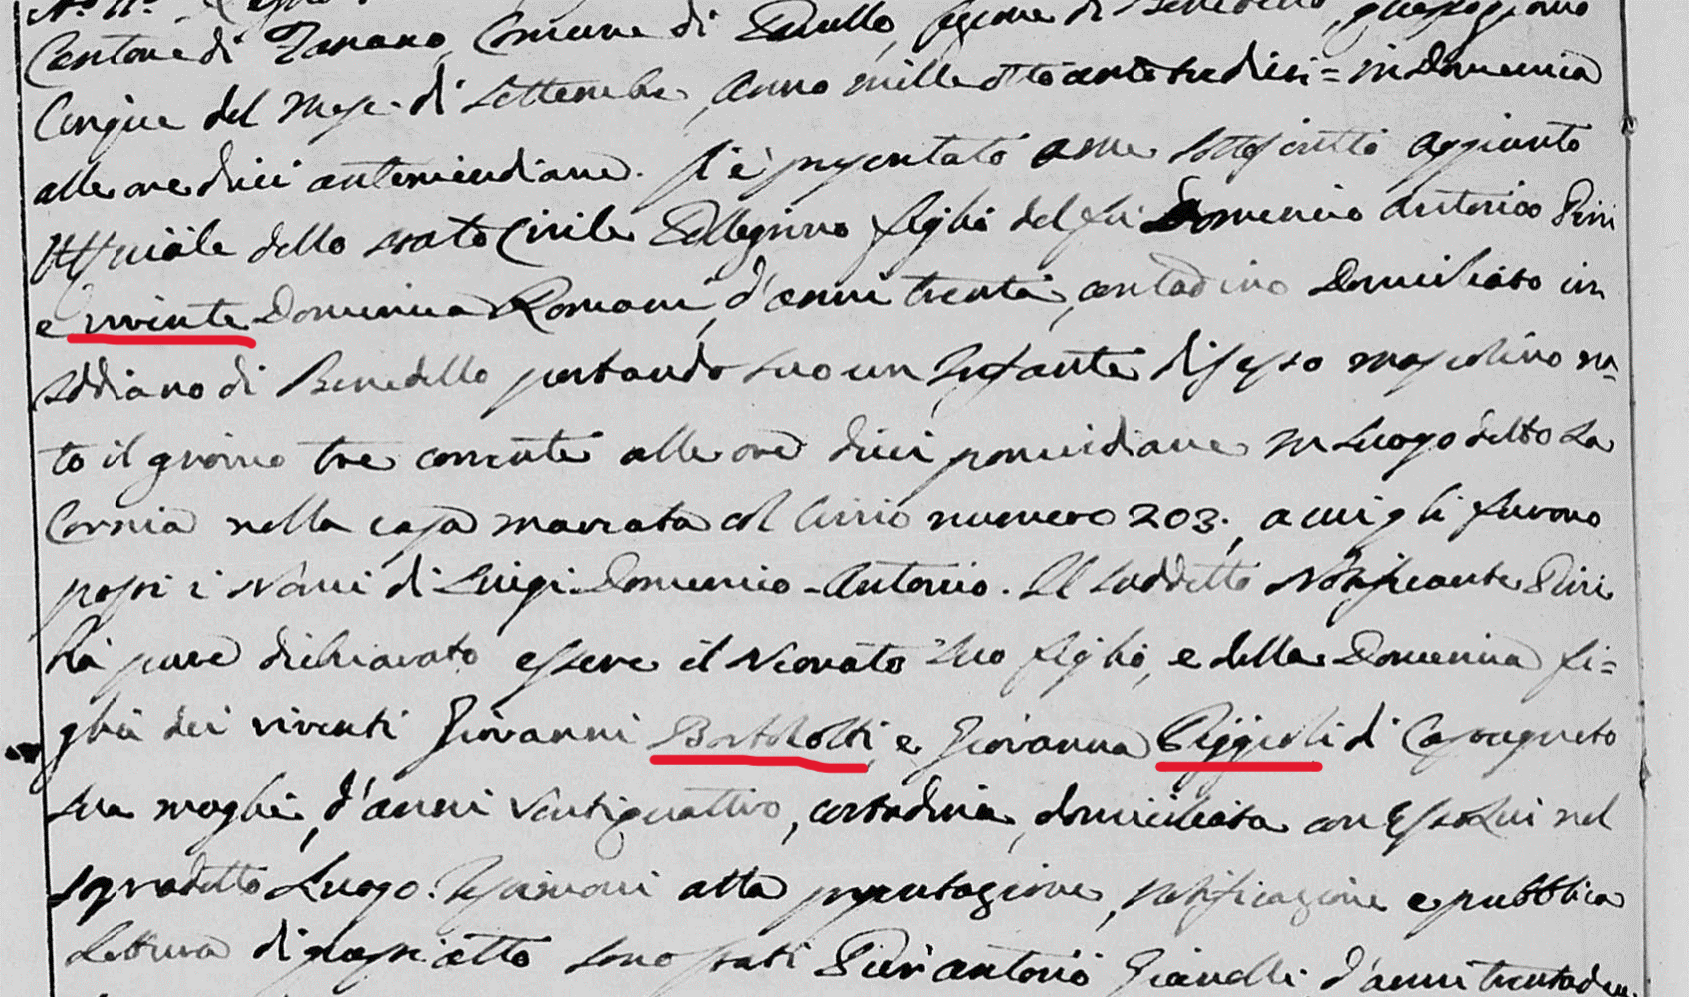 Cantone di Fanano, Comune di Paullo, sezione di Benedello, questo giorno
Cinque del Mese di Settembre, Anno mille otto cento sedici = in Domenica
alle ore dieci antemeridiane. Si è presentato a me sottoscritto Aggiunto
Uffiziale dello stato Civile Pellegrino figlio del fu Domenico Antonio Pini
e vivente Domenica Romani, d'anni trenta, contadino Domiciliato in
di Benedello portando seco un Infante di sesso mascolino na=
to il giorno tre corrente alle ore dieci pomeridiane in Luogo detto La
Cornia nella casa marcata col Civico numero 203., a cui gli furono
posti i Nomi di Luigi Domenico-Antonio. Il suddetto Notificante Pini
hà pure dichiarato essere il Neonato suo figlio, e della Domenica fi=
glia dei viventi Giovanni Bortolotti, e Giovanna di Castagneto
sua moglie, d'anni Ventiquattro, contadina, domiciliata con Esso Lui nel
sopradetto Luogo. Testimoni alla presentazione, notificazione e pubblica
Lettura di questo atto sono stati Pier Antonio Gianelli d'anni